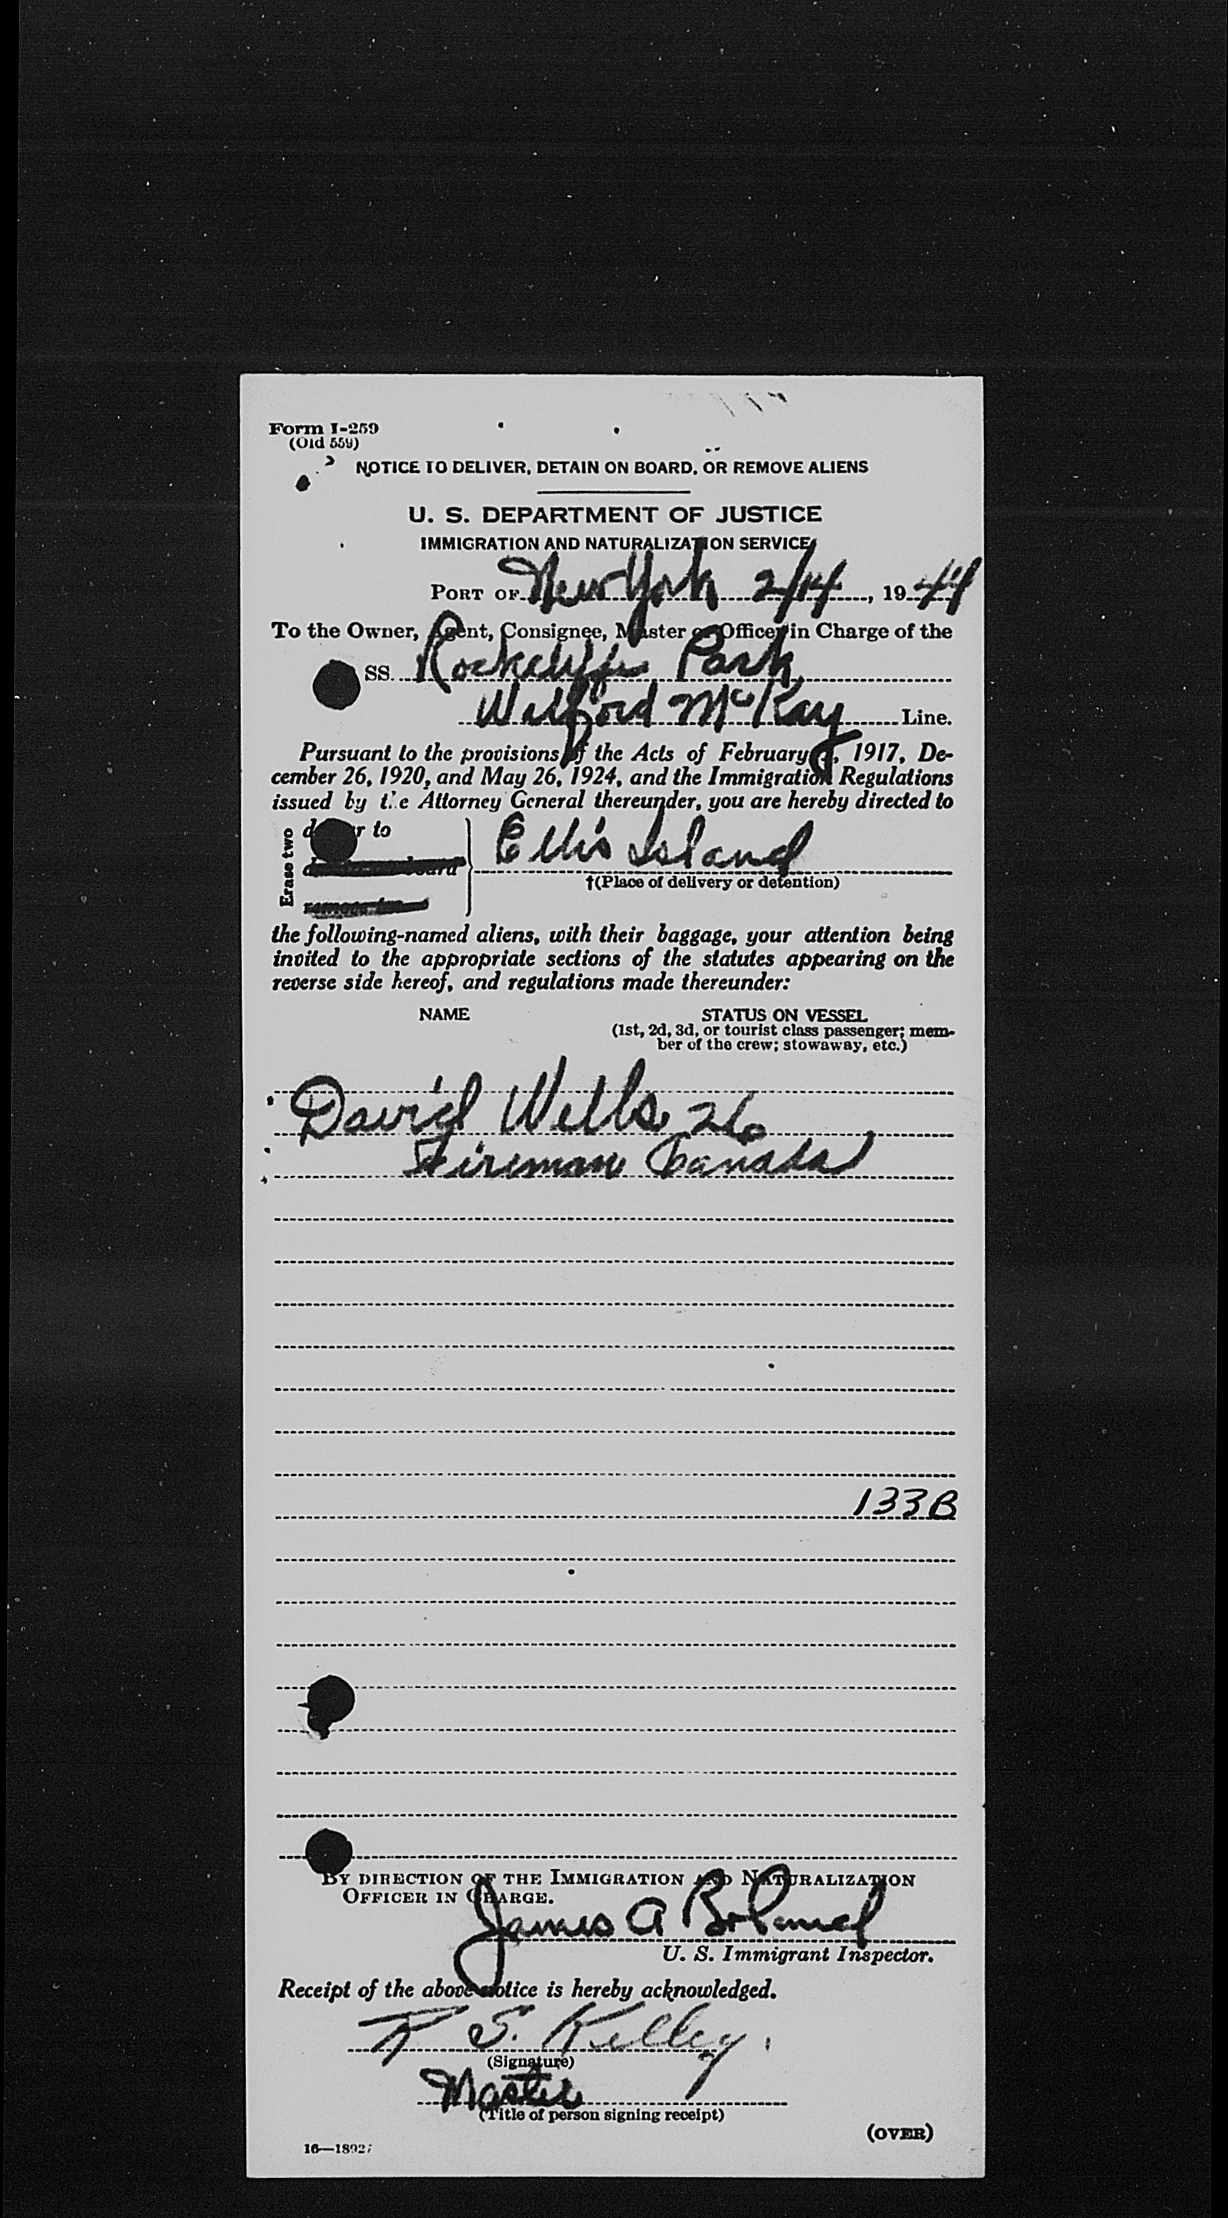 Form I-259
(Old 559)
NOTICE TO DELIVER, DETAIN ON BOARD, OR REMOVE ALIENS
U. S. DEPARTMENT OF JUSTICE
IMMIGRATION AND NATURALIZATION SERVICE
PORT OF New York 2/14, 1944
To the Owner, Agent, Consignee, Master or Officer in Charge of the
SS. Rockcliffe Park
Wilford McKay Line.
Pursuant to the provisions of the Acts of February 5, 1917, De-
cember 26, 1920, and May 26, 1924, and the Immigration Regulations
issued by the Attorney General thereunder, you are hereby directed to
Erase two
deliver to
Ellis Island
†(Place of delivery or detention)
the following-named aliens, with their baggage, your attention being
invited to the appropriate sections of the statutes appearing on the
reverse side hereof, and regulations made thereunder:
NAME STATUS ON VESSEL
(1st, 2d, 3d, or tourist class passenger; mem-
ber of the crew; stowaway, etc.)
David Wells 26
Fireman Canada
133B
BY DIRECTION OF THE IMMIGRATION AND NATURALIZATION
OFFICER IN CHARGE.
James A Boland
U. S. Immigrant Inspector.
Receipt of the above notice is hereby acknowledged.
S. Kelley
(Signature)
Master
(Title of person signing receipt)
(OVER)